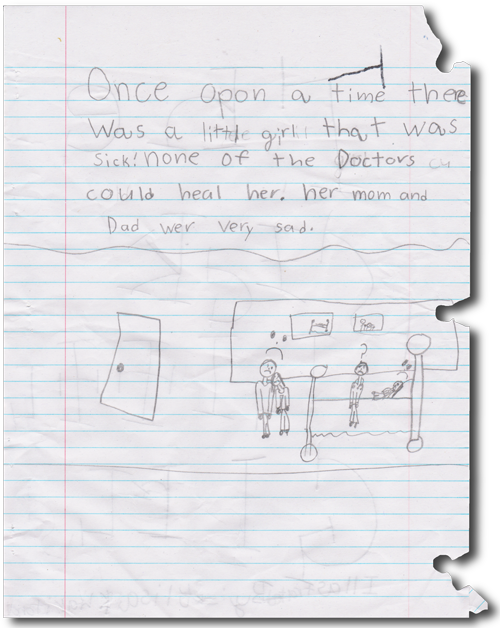 Once Upon a time thee
Was a little girl! that was
sick! none of the Doctors cu
could heal her. her mom and
Dad wer Very sad.